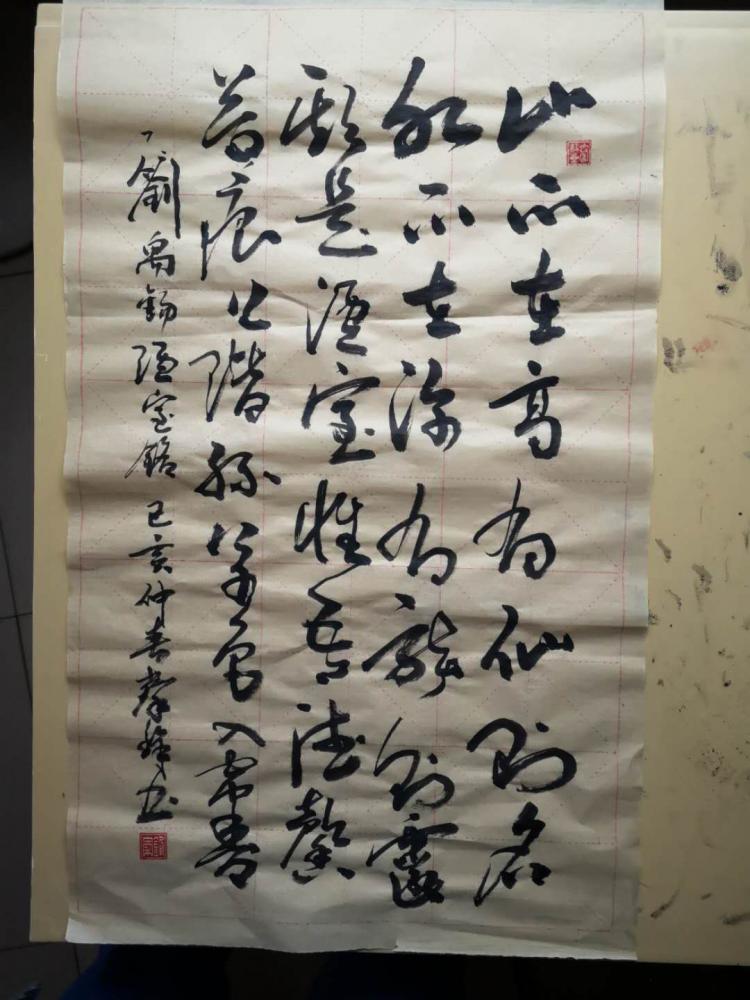 山不在高有仙則名
水不在深有龍則靈
斯是陋室惟吾德馨
苔痕上階綠草色入帘青
劉禹錫陋室銘 己亥仲春秦书